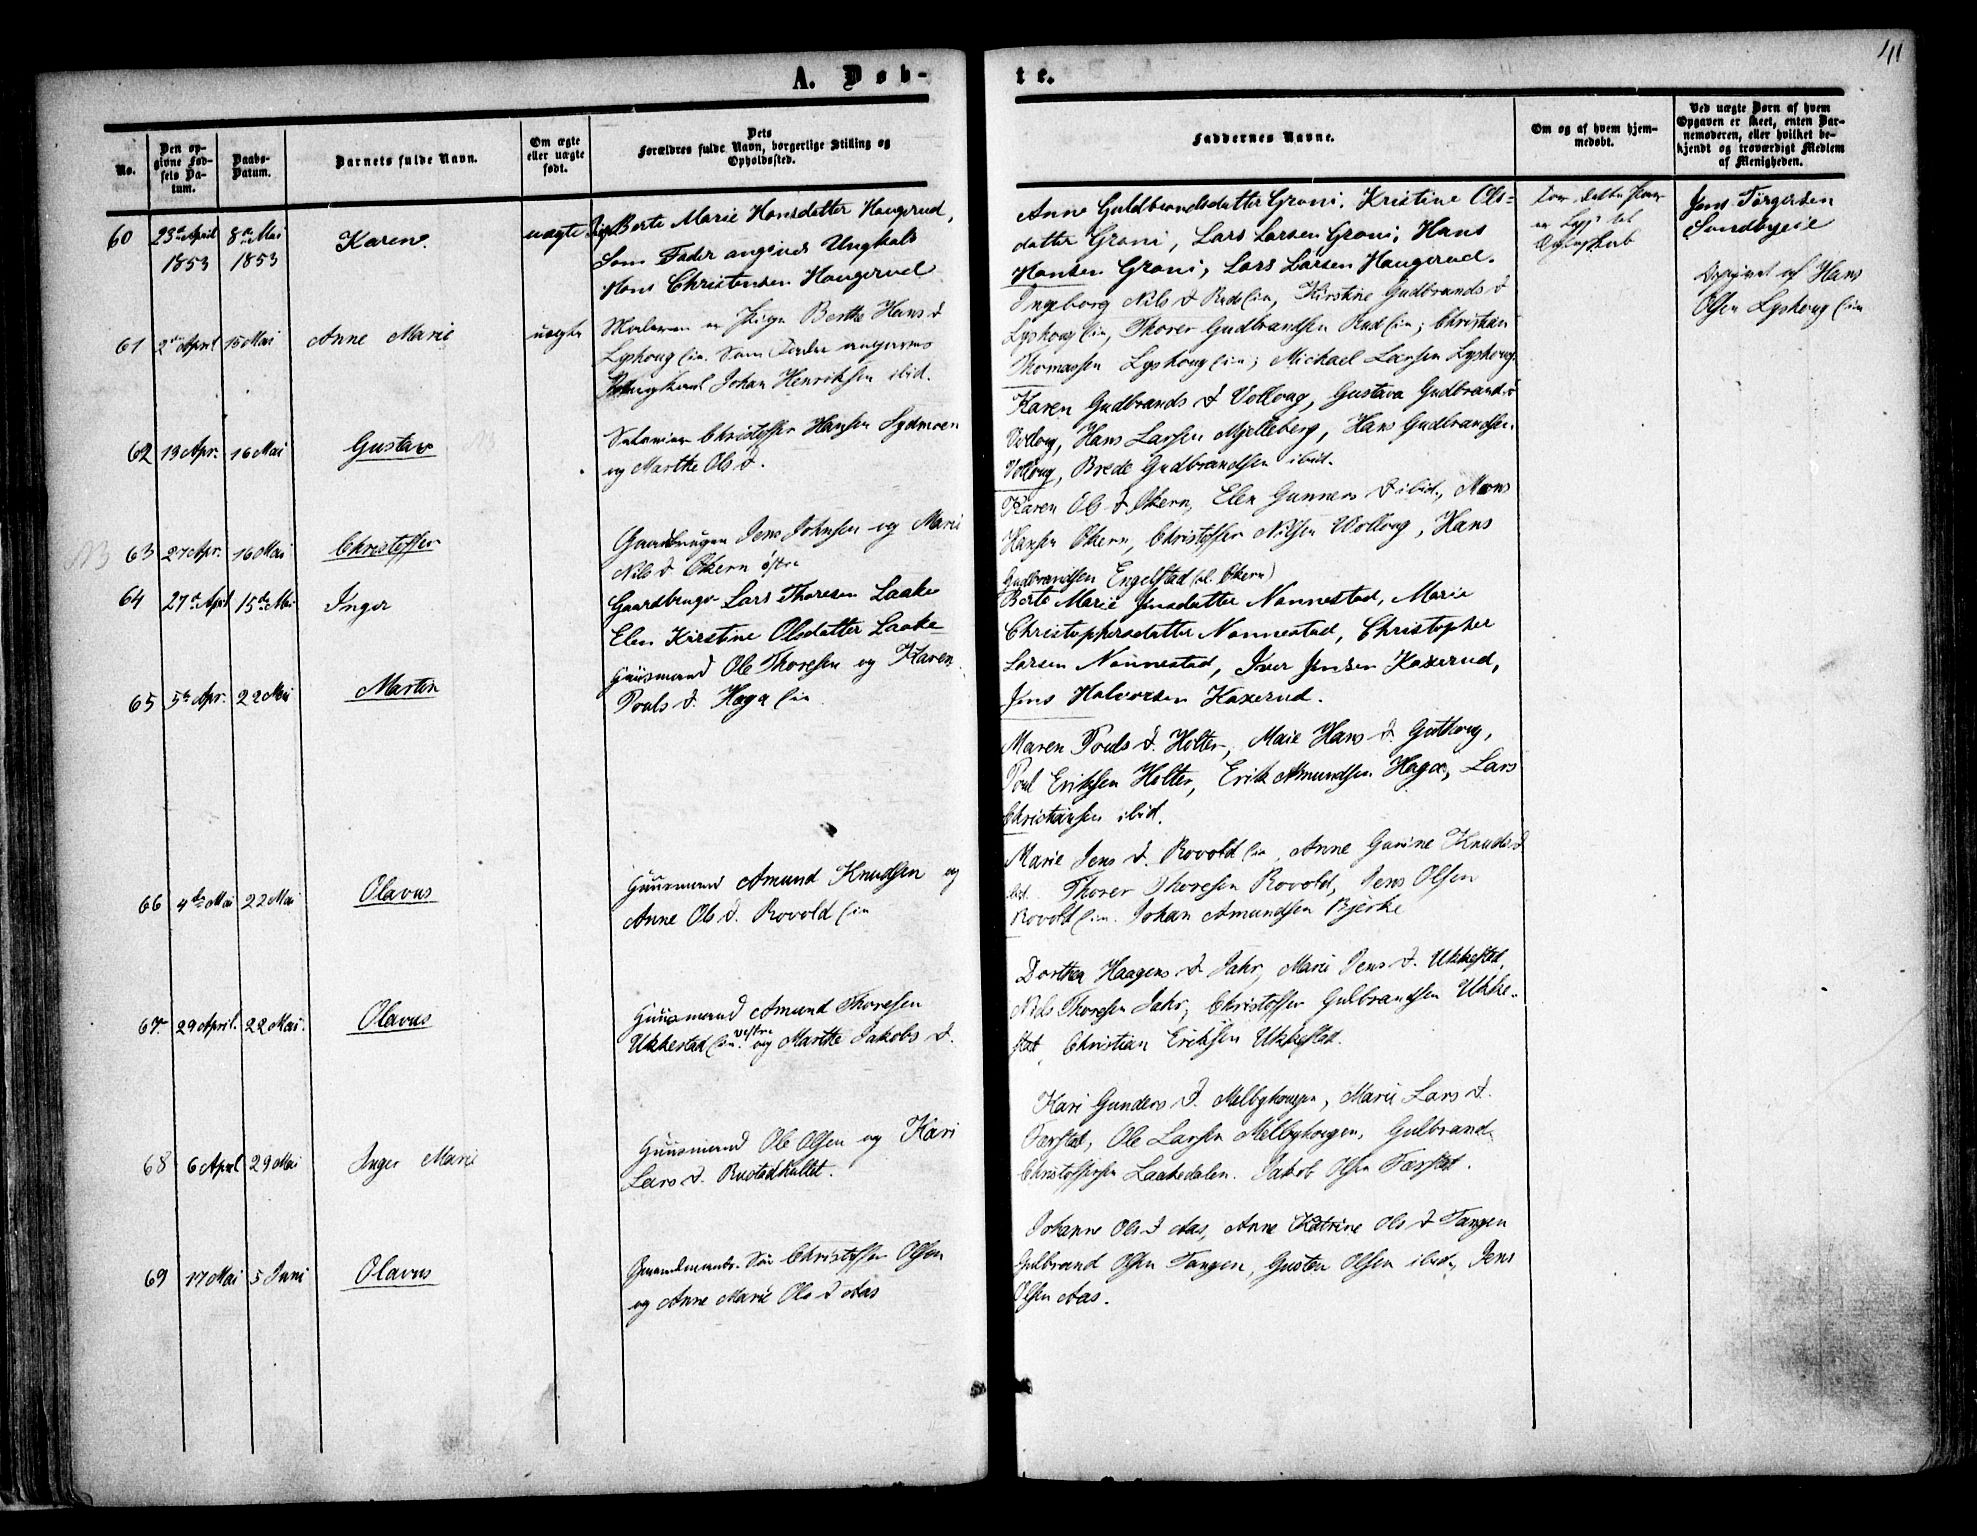 41
A. Døb-
te.
No.
Den op-
givne Fød-
sels Da-
tum.
Daabs-
Datum.
Barnets fulde Navn.
Om ægte
eller uægte
født.
Dets
Forældres fulde Navn, borgerlige Stilling og
Opholdssted.
Faddernes Navne.
Om og af hvem hjem-
medøbt.
Ved uægte Børn af hvem
Opgaven er skeet, enten Bar-
nemoderen, eller hvilket be-
kjendt og troværdigt Medlem
af Menigheden.
60
23de April
1853
8de Mai
1853
Karen.
uægte
Berte Marie Hansdatter Haugerud,
Som Fader angives Ungkals
Hans Christensen Haugerud
Anne Guldbrandsdatter Groni, Kristine Ols-
datter Groni, Lars Larsen Groni, Hans
Hansen Groni, Lars Larsen Haugerud.
Jens Tørgersen
Sundbyeie
61
2den April
15 Mai
Anne Marie
uægte
Moderen er Pige Berthe Hans D
Lyshoug Eie. Som Fader angives
Ungkarl Johan Henriksen ibid.
Ingeborg Nils D Rud Eie, Kirstine Gudbrands D
Lyshoug Eie, Thorer Gudbrandsen Rud Eie, Christian
Thomassen Lyshoug Eie; Michael Larsen Lyshoug.
Opgivet af Hans
Olsen Lyshoug Eie
62
13 Apr.
16 Mai
Gustav
Christoffer Hansen Sydmoen
og Marthe Ols D.
Karen Gudbrands D Vollaug, Gustava Gudbrands D
Vollaug, Hans Larsen Mjelleberg, Hans Gudbrandsen
Vollaug, Brede Gudbrandsen ibid.
NB
63
27 Apr.
16 Mai
Christoffer
Gaardbrugen Jens Johnsen og Marie
Nils D Økern østre
Karen Ols D Økern, Elen Gunners D ibid., Mons
Hansen Økern, Christoffer Nilsen Vollaug, Hans
Gudbrandsen Engelstad (el. Økern)
64
27de April
15de Mai
Inger
Gaardbrugr Lars Thoresen Laake
Elen Kirstine Olsdatter Laake
Berte Marie Jensdatter Nannestad, Marie
Christophersdatter Nannestad, Christopher
Larsen Nannestad, Iver Jensen Kaxerud,
Jens Halvorsen Kaxerud.
65
5te Apr.
22 Mai
Martin
Huusmand Ole Thoresen og Karen
Pouls D. Haga Eie
Maren Pouls D. Holter, Marie Hans D. Guthoug,
Poul Eriksen Holter, Erik Amundsen Haga, Lars
Christiansen ibid.
66
4de Mai
22 Mai
Olavus
Huusmand Amund Knudsen og
Anne Ols D. Rovold Eie
Marie Jens D. Rovold Eie, Anne Gurine Knuds D
ibid. Thorer Thoresen Rovold, Jens Olsen
Rovold Eie. Johan Amundsen Bjerke
67
29 April.
22 Mai.
Olavus
Huusmand Amund Thoresen
Ukkestad Eie vestre og Marthe Jakobs D.
Dorthea Haagens D Jahr, Marie Jens D. Ukkestad,
Nils Thoresen Jahr, Christoffer Gulbrandsen Ukke-
stad, Christian Eriksen Ukkestad.
68
6 April
29 Mai
Inger Marie
Huusmand Ole Olsen og Kari
Lars D. Rustadkullet.
Kari Gunders D. Melbyhougen, Marie Lars D.
Færstad, Ole Larsen Melbyhougen, Gulbrand
Christoffersen Laakedalen. Jakob Olsen Færstad.
69
17 Mai
5 Juni
Olavus
Gaardmands Søn Christoffer Olsen
og Anne Marie Ols D Aas
Johanne Ols D Aas, Anne Katrine Ols D Tangen
Gulbrand Olsen Tangen, Gustav Olsen ibid., Jens
Olsen Aas.